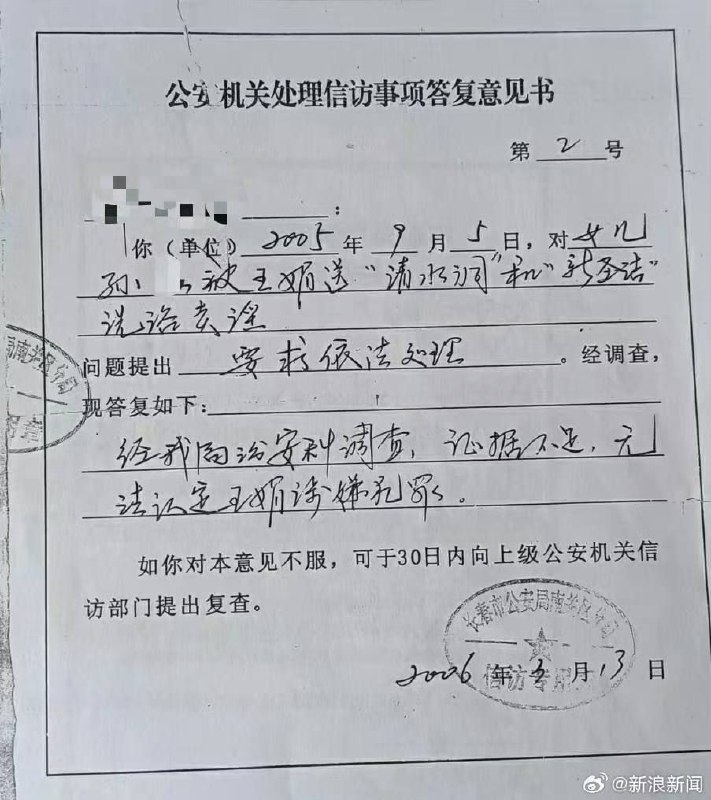 公安机关处理信访事项答复意见书
第 2 号
:
你（单位）2005年9月5日，对女儿
孙 被王娟送"清水润"和"新圣洁"
洗浴卖淫
问题提出 要求依法处理 。经调查，
现答复如下：
经我局治安科调查，证据不足，无
法认定王娟涉嫌犯罪。
如你对本意见不服，可于30日内向上级公安机关信
访部门提出复查。
长春市公安局南关区分局
信访专用
2006年 月13日
@新浪新闻